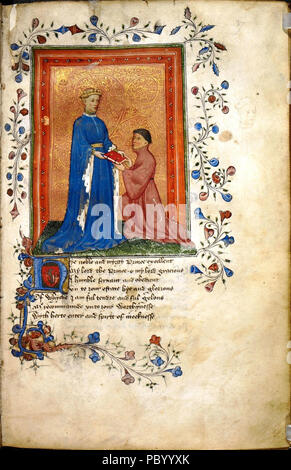 noble and myghty Prince excellent
My lord the Prince o my lord gracious
humble servant and obedient
on to your estate hye and glorious
Of whiche I am ful tendre and ful gelous
Me recomande unto your worthynesse
With herte enter and spirit of meeknesse
PBYYXK